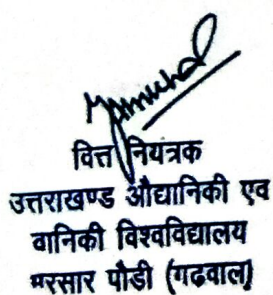 वित्त नियत्रक
उत्तराखण्ड औद्यानिकी एव
वानिकी विश्वविद्यालय
भरसार पौडी (गढवाल)